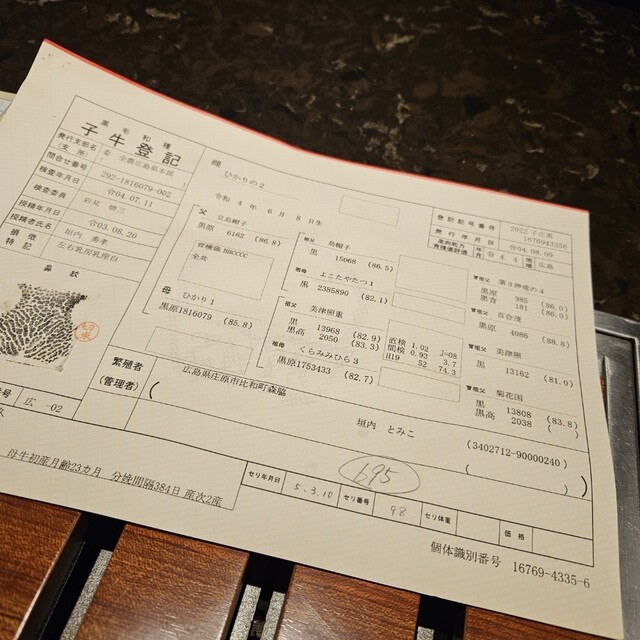 黒毛和種
子牛登記
発行支部名(支所) 全農広島県本部
問合せ番号 292-1816079-002
検査年月日 令04.07.11
検査委員
授精年月日 令03.08.20
授精者氏名 垣内 秀孝
損徴特記 左右乳房乳座白
鼻紋
番号 広 -02
雌
ひかりの2
令和 4 年 6 月 8 日生
登記記号番号 2022 子広黒 1676943356
発行年月日 令04.08.09
令 4. 4 地域 広島
父 立烏帽子
黒原 6162 (86.8)
BBCCCC
全共
母 ひかり1
黒原1816079 (85.8)
祖父 烏帽子
黒 15068 (86.5)
祖母 よこたやたつ1
黒 2385890 (82.1)
祖父 美津照重
黒 13968 (82.9)
黒高 2050 (83.3)
祖母 くらみみひら3
黒原1753433 (82.7)
直検 1.02 J-08
間検 0.93 3.7
H19 52 74.3
曾祖父 第3神竜の4
黒原 985 (86.0)
黒育 181 (86.0)
曾祖父 百合茂
黒原 4086 (88.8)
曾祖父 美津照
黒 13162 (81.0)
曾祖父 菊花国
黒 13808 (83.8)
黒高 2038 ( )
繁殖者
(管理者)
広島県庄原市比和町森脇
垣内 とみこ
(3402712-90000240)
695
母牛初産月齢23カ月 分娩間隔384日 産次2産
セリ年月日 5.3.10 セリ番号 98 セリ体重 価格
個体識別番号 16769-4335-6